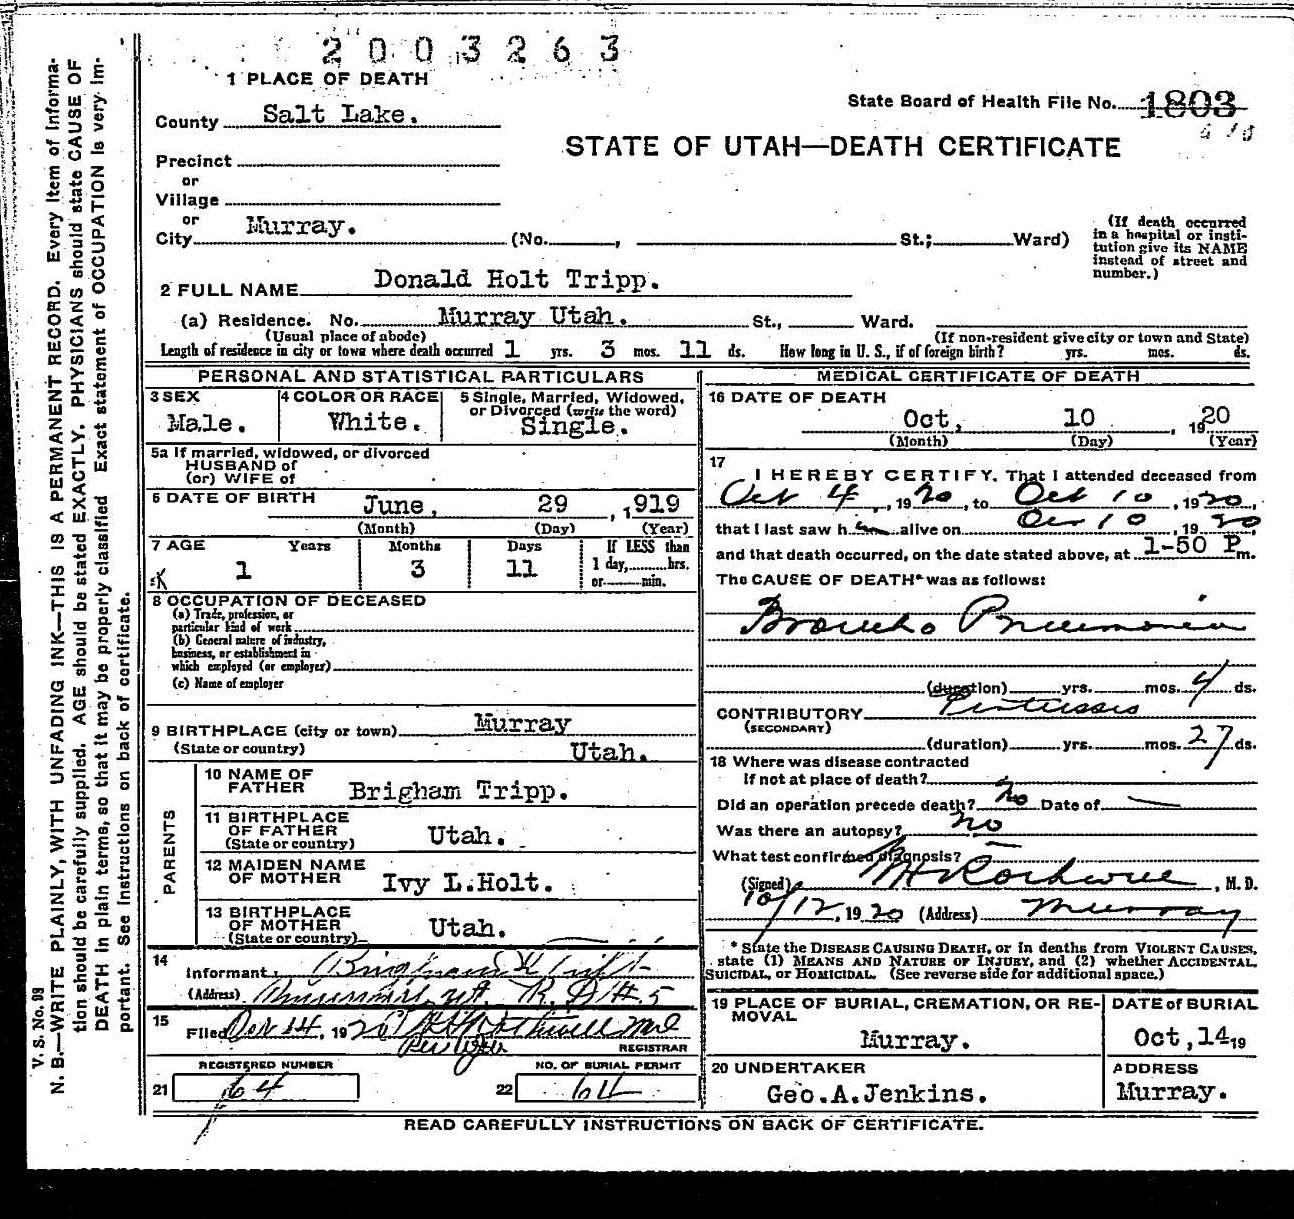 2003263
1 PLACE OF DEATH
State Board of Health File No. 1803
County Salt Lake.
STATE OF UTAH—DEATH CERTIFICATE
Precinct
or
Village
or
City Murray. (No. , St.; Ward)
(If death occurred
in a hospital or insti-
tution give its NAME
instead of street and
number.)
2 FULL NAME Donald Holt Tripp.
(a) Residence. No. Murray Utah. St., Ward.
(Usual place of abode) (If non-resident give city or town and State)
Length of residence in city or town where death occurred 1 yrs. 3 mos. 11 ds. How long in U. S., if of foreign birth? yrs. mos. ds.
PERSONAL AND STATISTICAL PARTICULARS
3 SEX
Male.
4 COLOR OR RACE
White.
5 Single, Married, Widowed,
or Divorced (write the word)
Single.
5a If married, widowed, or divorced
HUSBAND of
(or) WIFE of
6 DATE OF BIRTH June, 29 , 1919
(Month) (Day) (Year)
7 AGE Years Months Days If LESS than
1 3 11 1 day, hrs.
or min.
8 OCCUPATION OF DECEASED
(a) Trade, profession, or
particular kind of work
(b) General nature of industry,
business, or establishment in
which employed (or employer)
(c) Name of employer
9 BIRTHPLACE (city or town) Murray
(State or country) Utah.
PARENTS
10 NAME OF
FATHER Brigham Tripp.
11 BIRTHPLACE
OF FATHER
(State or country) Utah.
12 MAIDEN NAME
OF MOTHER Ivy L.Holt.
13 BIRTHPLACE
OF MOTHER
(State or country) Utah.
14
Informant Brigham Tripp
(Address) R. D. #5
15
Filed Oct 14, 1920 Rothwell MD
REGISTRAR
REGISTERED NUMBER NO. OF BURIAL PERMIT
21 64 22 64
MEDICAL CERTIFICATE OF DEATH
16 DATE OF DEATH
Oct, 10 , 1920
(Month) (Day) (Year)
17
I HEREBY CERTIFY, That I attended deceased from
Oct 4, 1920, to Oct 10, 1920,
that I last saw him alive on Oct 10, 1920
and that death occurred, on the date stated above, at 1-50 P m.
The CAUSE OF DEATH* was as follows:
Broncho Pneumonia
(duration) yrs. mos. 4 ds.
CONTRIBUTORY Pertussis
(SECONDARY)
(duration) yrs. mos. 27 ds.
18 Where was disease contracted
If not at place of death?
Did an operation precede death? no Date of —
Was there an autopsy? no
What test confirmed diagnosis? —
(Signed) H Rothwell, M. D.
10/12, 1920 (Address) Murray
* State the DISEASE CAUSING DEATH, or in deaths from VIOLENT CAUSES,
state (1) MEANS AND NATURE OF INJURY, and (2) whether ACCIDENTAL
SUICIDAL, or HOMICIDAL. (See reverse side for additional space.)
19 PLACE OF BURIAL, CREMATION, OR RE-
MOVAL
Murray.
DATE of BURIAL
Oct,14 19
20 UNDERTAKER
Geo.A.Jenkins.
ADDRESS
Murray.
READ CAREFULLY INSTRUCTIONS ON BACK OF CERTIFICATE.
V. S. No. 98
N. B.—WRITE PLAINLY, WITH UNFADING INK—THIS IS A PERMANENT RECORD. Every item of informa-
tion should be carefully supplied. AGE should be stated EXACTLY. PHYSICIANS should state CAUSE OF
DEATH in plain terms, so that it may be properly classified Exact statement of OCCUPATION is very im-
portant. See instructions on back of certificate.